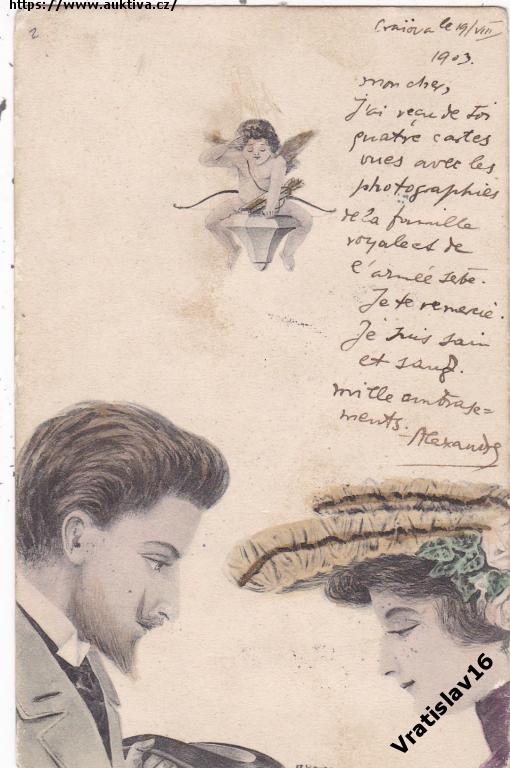 https://www.auktiva.cz/
2
Craïova le 19/VIII
1903.
mon cher,
J'ai reçu de toi
quatre cartes
vues avec les
photographies
de la famille
royale et de
l'armée sebe.
Je te remercie.
Je suis sain
et sauf.
mille embrasse=
ments.
Alexandre
Vratislav16